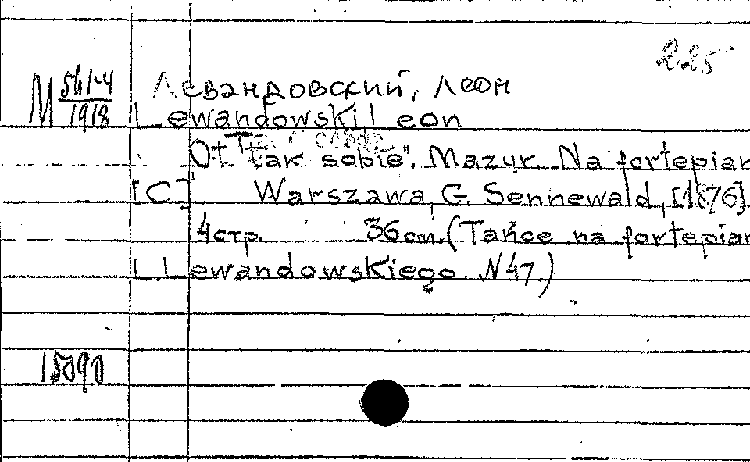 225
М 561-4/1918
Левандовский, Леон
Lewandowski Leon
"Ot tak sobie". Mazur. Na fortepian
[C] Warszawa, G. Sennewald, [1876].
4 стр. 36 см. (Tańce na fortepian
L. Lewandowskiego N47.)
15090